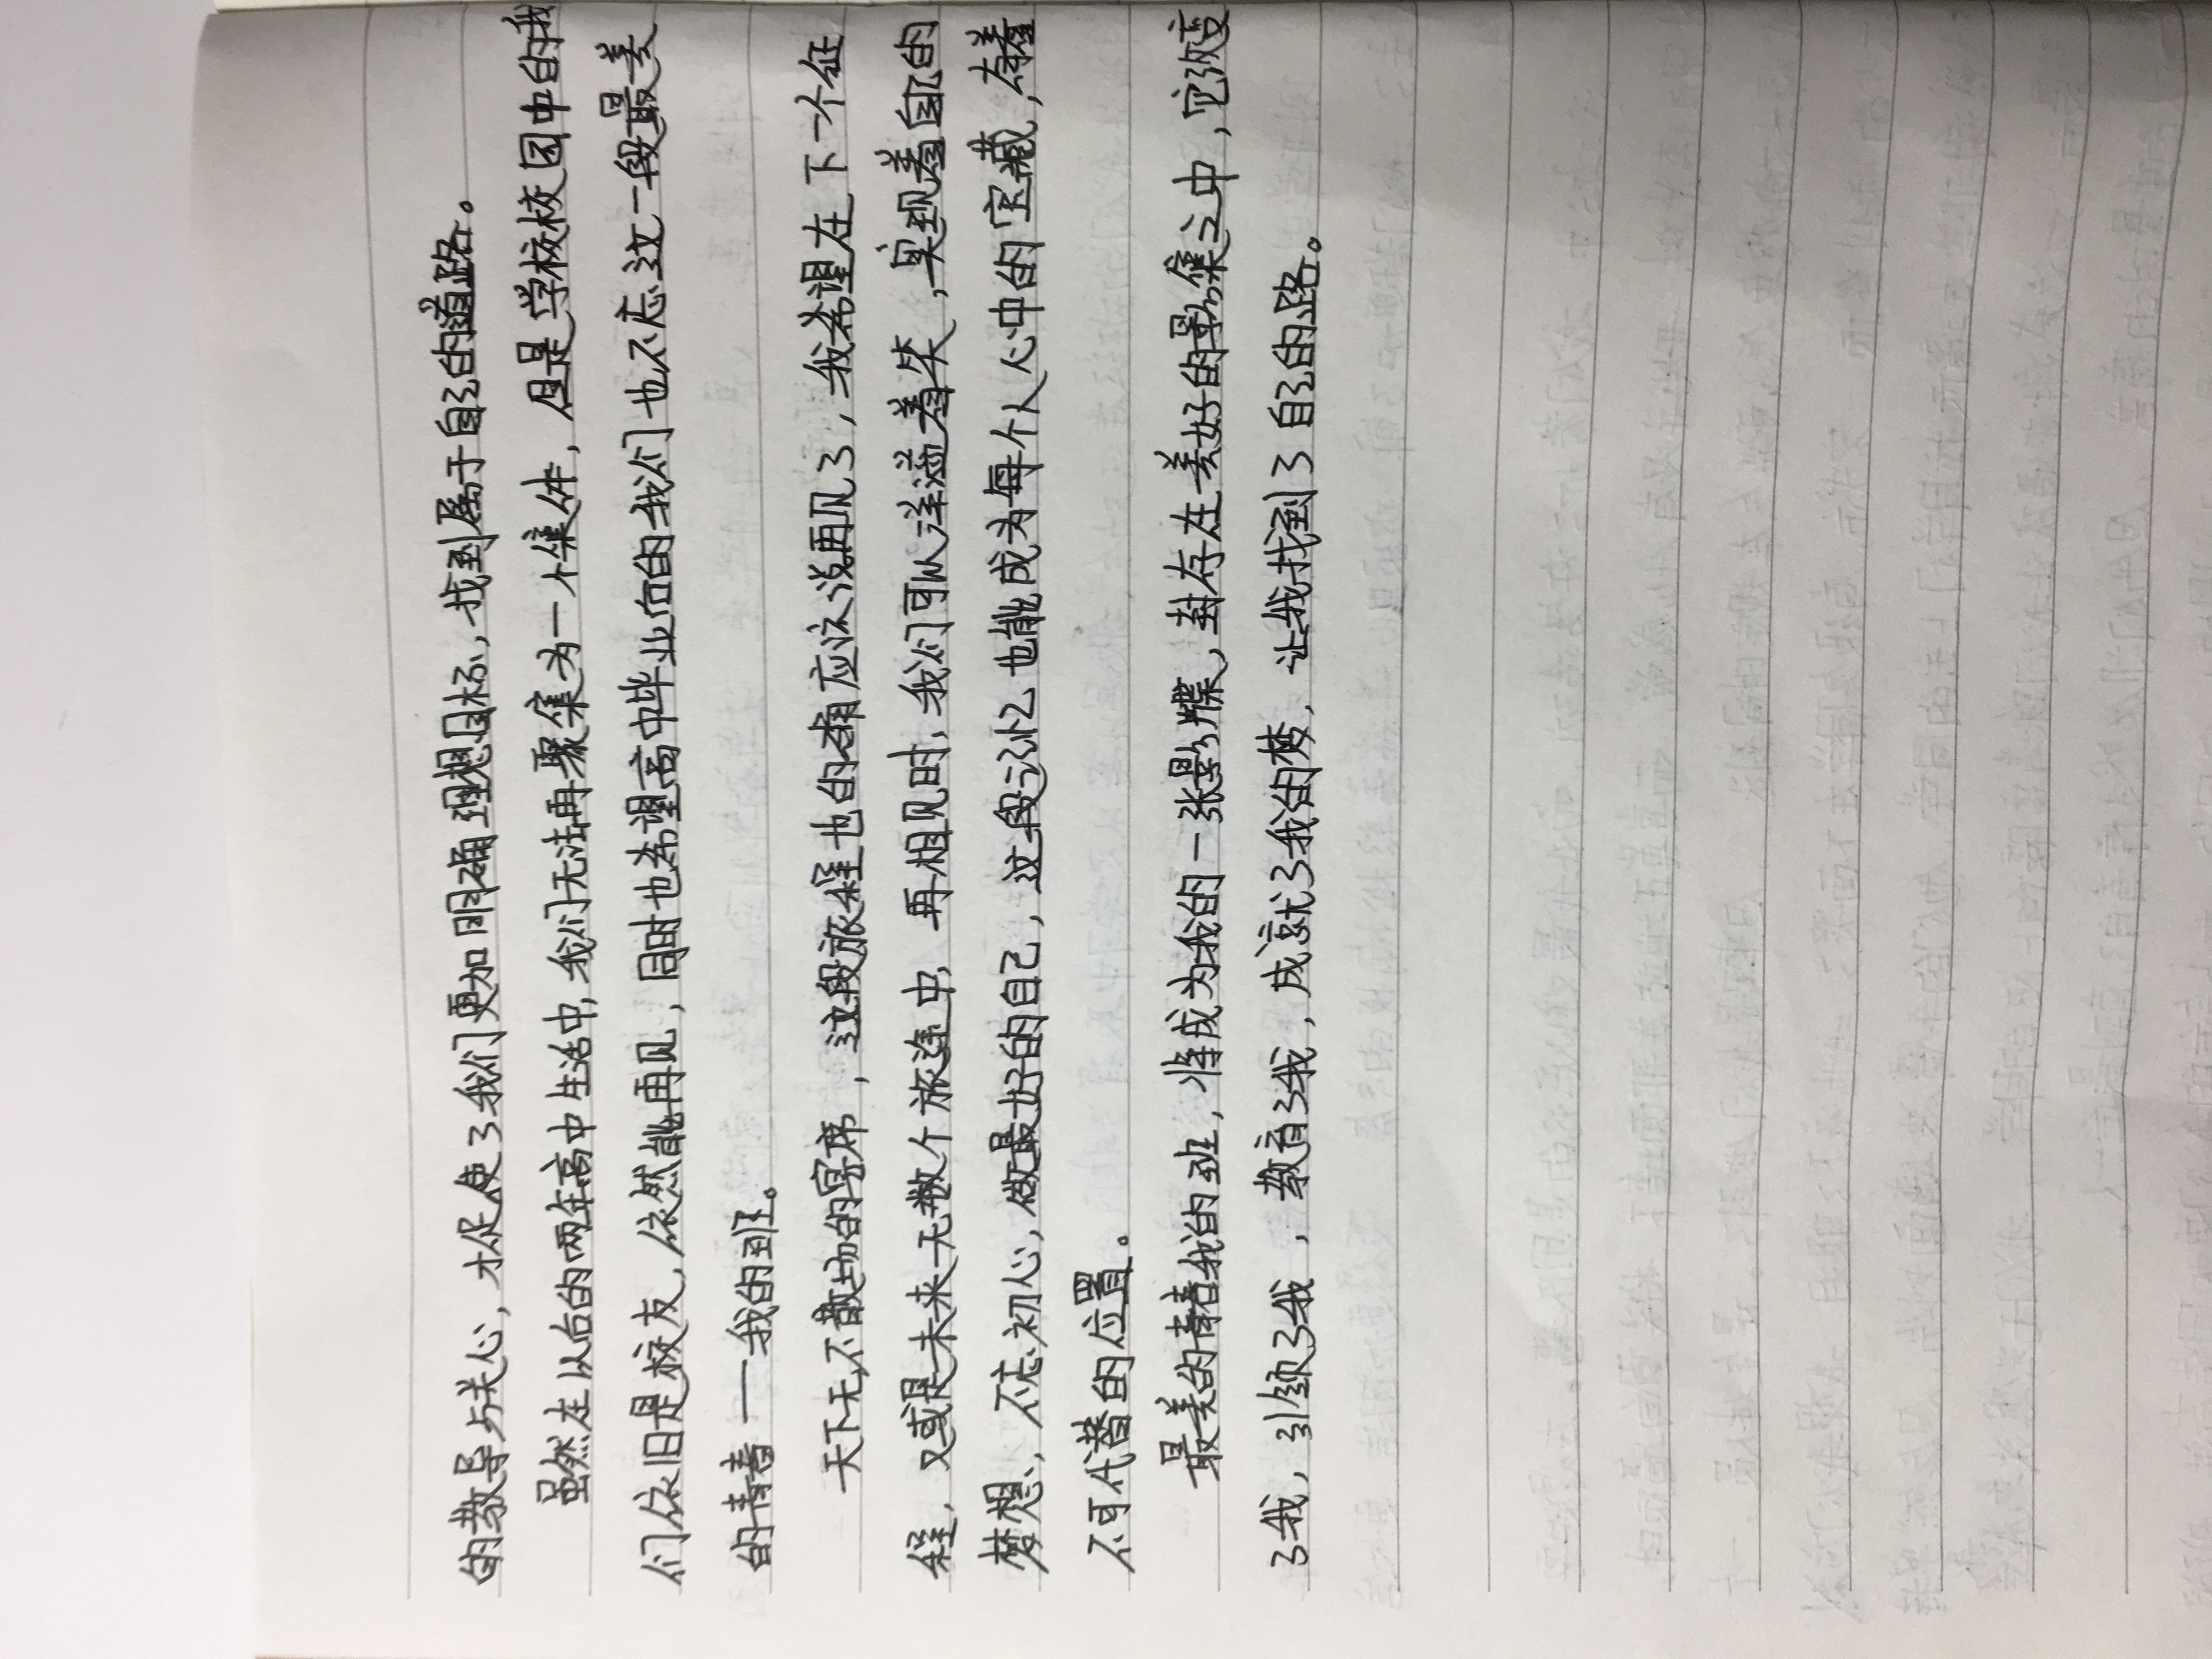 的教导与关心，才促使了我们更加明确理想目标，找到属于自己的道路。
虽然在从后的两年高中生活中，我们无法再聚集为一个集体，但是学校校园中的我
们依旧是校友，依然能再见，同时也希望高中毕业后的我们也不忘这一段最美
的青春——我的班。
天下无不散场的宴席，这段旅程也的确应该说再见了，我希望在下一个征
程，又或是未来无数个旅途中，再相见时，我们可以洋溢着笑，实现着自己的
梦想，不忘初心，做最好的自己，这段记忆也能成为每个人心中的宝藏，有着
不可代替的位置。
最美的青春我的班，将成为我的一张影牒，封存在美好的影集之中，它改变
了我，引领了我，教育了我，成就了我的梦，让我找到了自己的路。